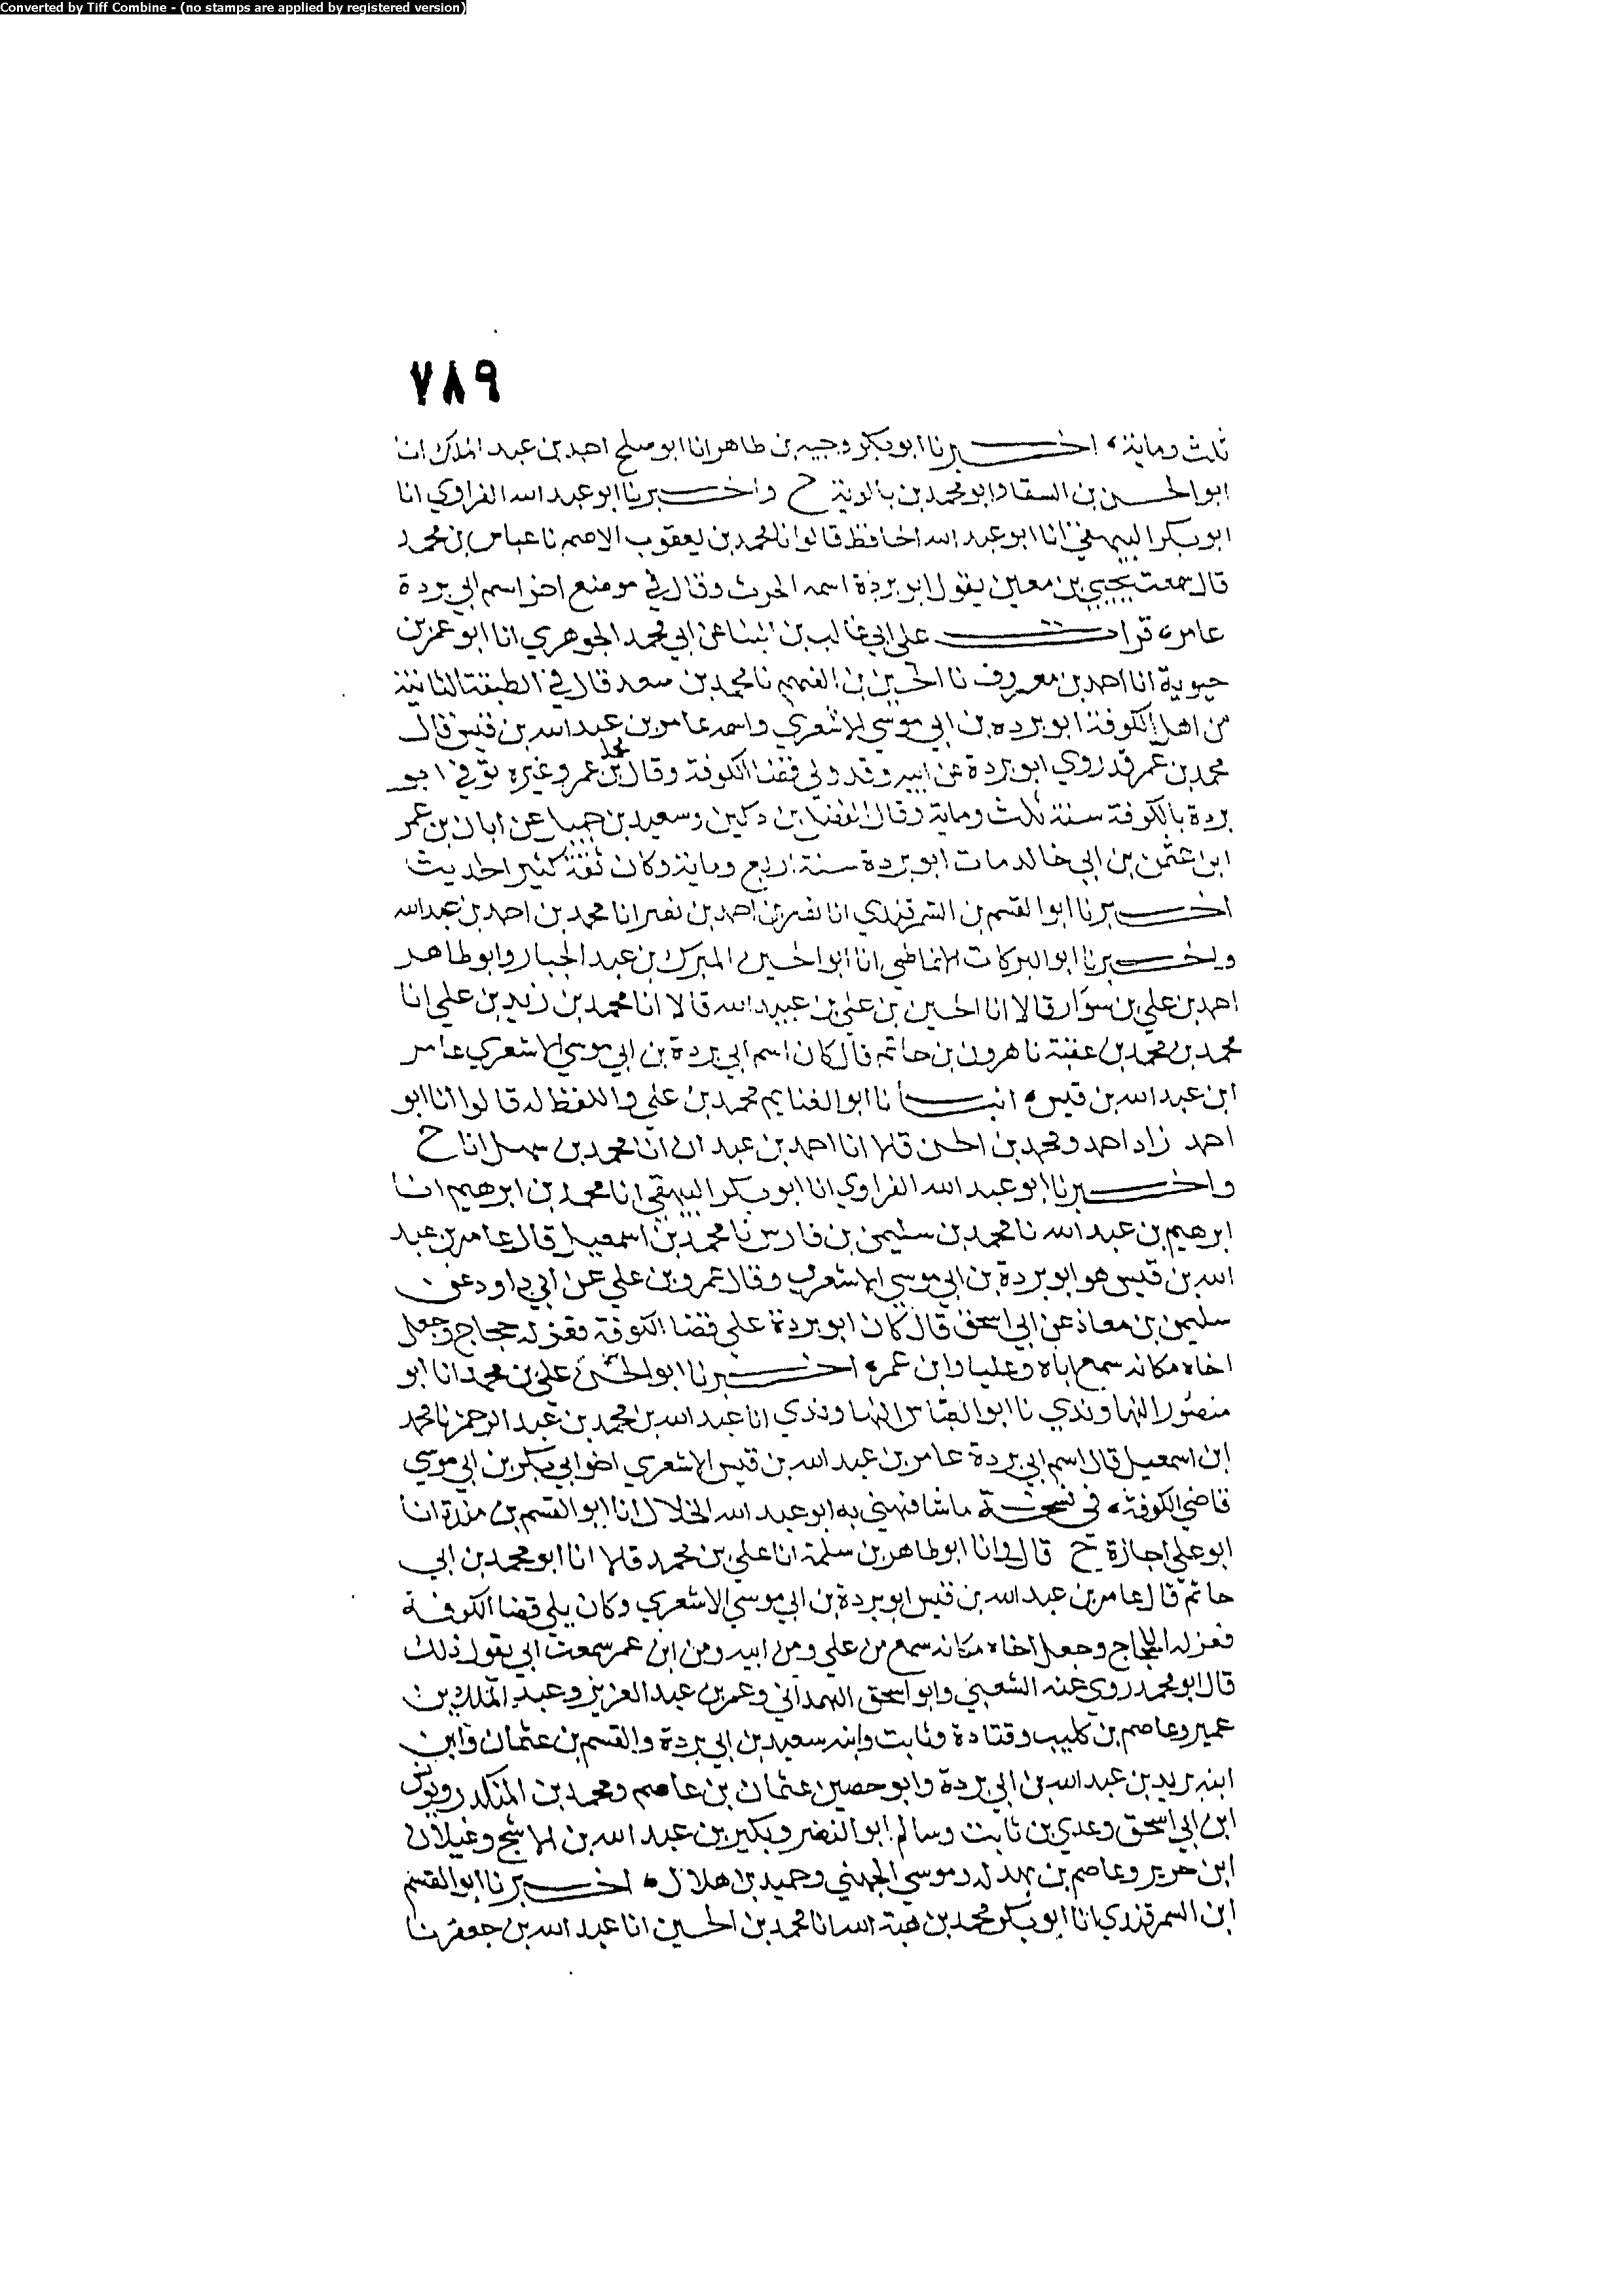 Converted by Tiff Combine - (no stamps are applied by registered version)
٧٨٩
ثلث وماية، اخبرنا ابو بكر وجيه بن طاهر انا ابو صلح احمد بن عبد الملك انا
ابو الحسن بن السقا وابو محمد بن بالوية ح واخبرنا ابو عبد الله الفراوي انا
ابو بكر البيهقي انا ابو عبد الله الحافظ قالوا نا محمد بن يعقوب الاصم نا عباس بن محمد
قال سمعت يحيي بن معين يقول ابو بردة اسمه الحرث وقال في موضع اخر اسم ابي بردة
عامر، قرات على ابي غالب بن البنا عن ابي محمد الجوهري انا ابو عمر بن
حيوية انا احمد بن معروف نا الحسين بن الفهم نا محمد بن سعد قال في الطبقة الثانية
من اهل الكوفة ابو برده بن ابي موسي الاشعري واسمه عامر بن عبد الله بن قيس قال
محمد بن عمر قد روي ابو بردة عن ابيه وقد ولي قضا الكوفة وقال محمد بن عمر وغيره توفي ابو
بردة بالكوفة سنة ثلث وماية وقال الفضل بن دكين وسعيد بن جميل عن ابان بن عمر
ابن عثمن بن ابي خالد مات ابو بردة سنة اربع وماية وكان ثقة كثير الحديث
اخبرنا ابو القسم بن السمرقندي انا نصر بن احمد بن نصر انا محمد بن احمد بن عبد الله
واخبرنا ابو البركات الانماطي انا ابو الحسين المبرك بن عبد الجبار وابو طاهر
احمد بن علي بن سوار قالا انا الحسين بن علي بن عبيد الله قالا انا محمد بن زيد بن علي انا
محمد بن محمد بن عقبة نا هرون بن حاتم قال كان اسم ابي بردة بن ابي موسي الاشعري عامر
ابن عبد الله بن قيس، انبانا ابو الغنايم محمد بن علي واللفظ له قالوا انا ابو
احمد زاد احمد ومحمد بن الحسن قالا انا احمد بن عبدان انا محمد بن سهل انا ح
واخبرنا ابو عبد الله الفراوي انا ابو بكر البيهقي انا محمد بن ابرهيم انا
ابرهيم بن عبد الله نا محمد بن سليمن بن فارس نا محمد بن اسمعيل قال عامر بن عبد
الله بن قيس هو ابو بردة بن ابي موسي الاشعري وقال عمرو بن علي عن ابي داود عن
سليمن بن معاذ عن ابي اسحق قال كان ابو بردة علي قضا الكوفة فعزله حجاج وجعل
اخاه مكانه سمع اباه وعليا وابن عمر، اخبرنا ابو الحسن علي بن محمد انا ابو
منصور النهاوندي نا ابو العباس النهاوندي انا عبد الله بن محمد بن عبد الرحمن نا محمد
ابن اسمعيل قال اسم ابي بردة عامر بن عبد الله بن قيس الاشعري اخو ابي بكر بن ابي موسي
قاضي الكوفة، في نسخة ما شافهني به ابو عبد الله الخلال انا ابو القسم بن مندة انا
ابو علي اجازة ح قال وانا ابو طاهر بن سلمة انا علي بن محمد قالا انا ابو محمد بن ابي
حاتم قال عامر بن عبد الله بن قيس ابو بردة بن ابي موسي الاشعري وكان يلي قضا الكوفة
فعزله الحجاج وجعل اخاه مكانه سمع من علي ومن ابيه ومن ابن عمر سمعت ابي يقول ذلك
قال ابو محمد روي عنه الشعبي وابو اسحق الهمداني وعمر بن عبد العزيز وعبد الملك بن
عمير وعاصم بن كليب وقتادة وثابت وابنه سعيد بن ابي بردة والقسم بن عثمان وابن
ابنه بريد بن عبد الله بن ابي بردة وابو حصين عثمان بن عاصم ومحمد بن المنكدر ويونس
ابن ابي اسحق وعدي بن ثابت وسالم ابو النضر وبكير بن عبد الله بن الاشج وغيلان
ابن جرير وعاصم بن بهدله وموسي الجهني وحميد بن هلال، اخبرنا ابو القسم
ابن السمرقندي انا ابو بكر محمد بن هبة الله انا محمد بن الحسين انا عبد الله بن جعفر نا